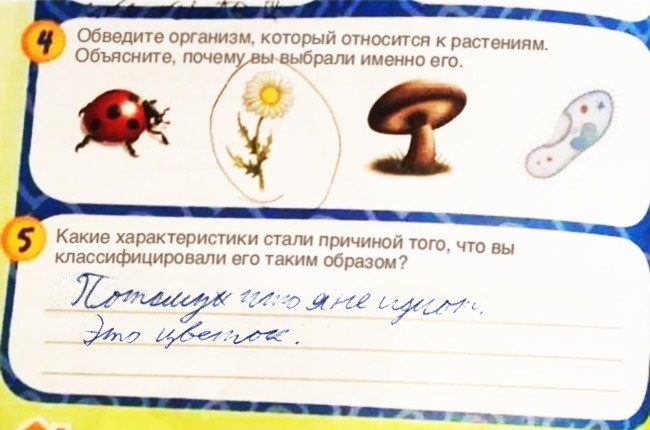 4
Обведите организм, который относится к растениям.
Объясните, почему вы выбрали именно его.
5
Какие характеристики стали причиной того, что вы
классифицировали его таким образом?
Потомуы что я не идиот.
Это цветок.